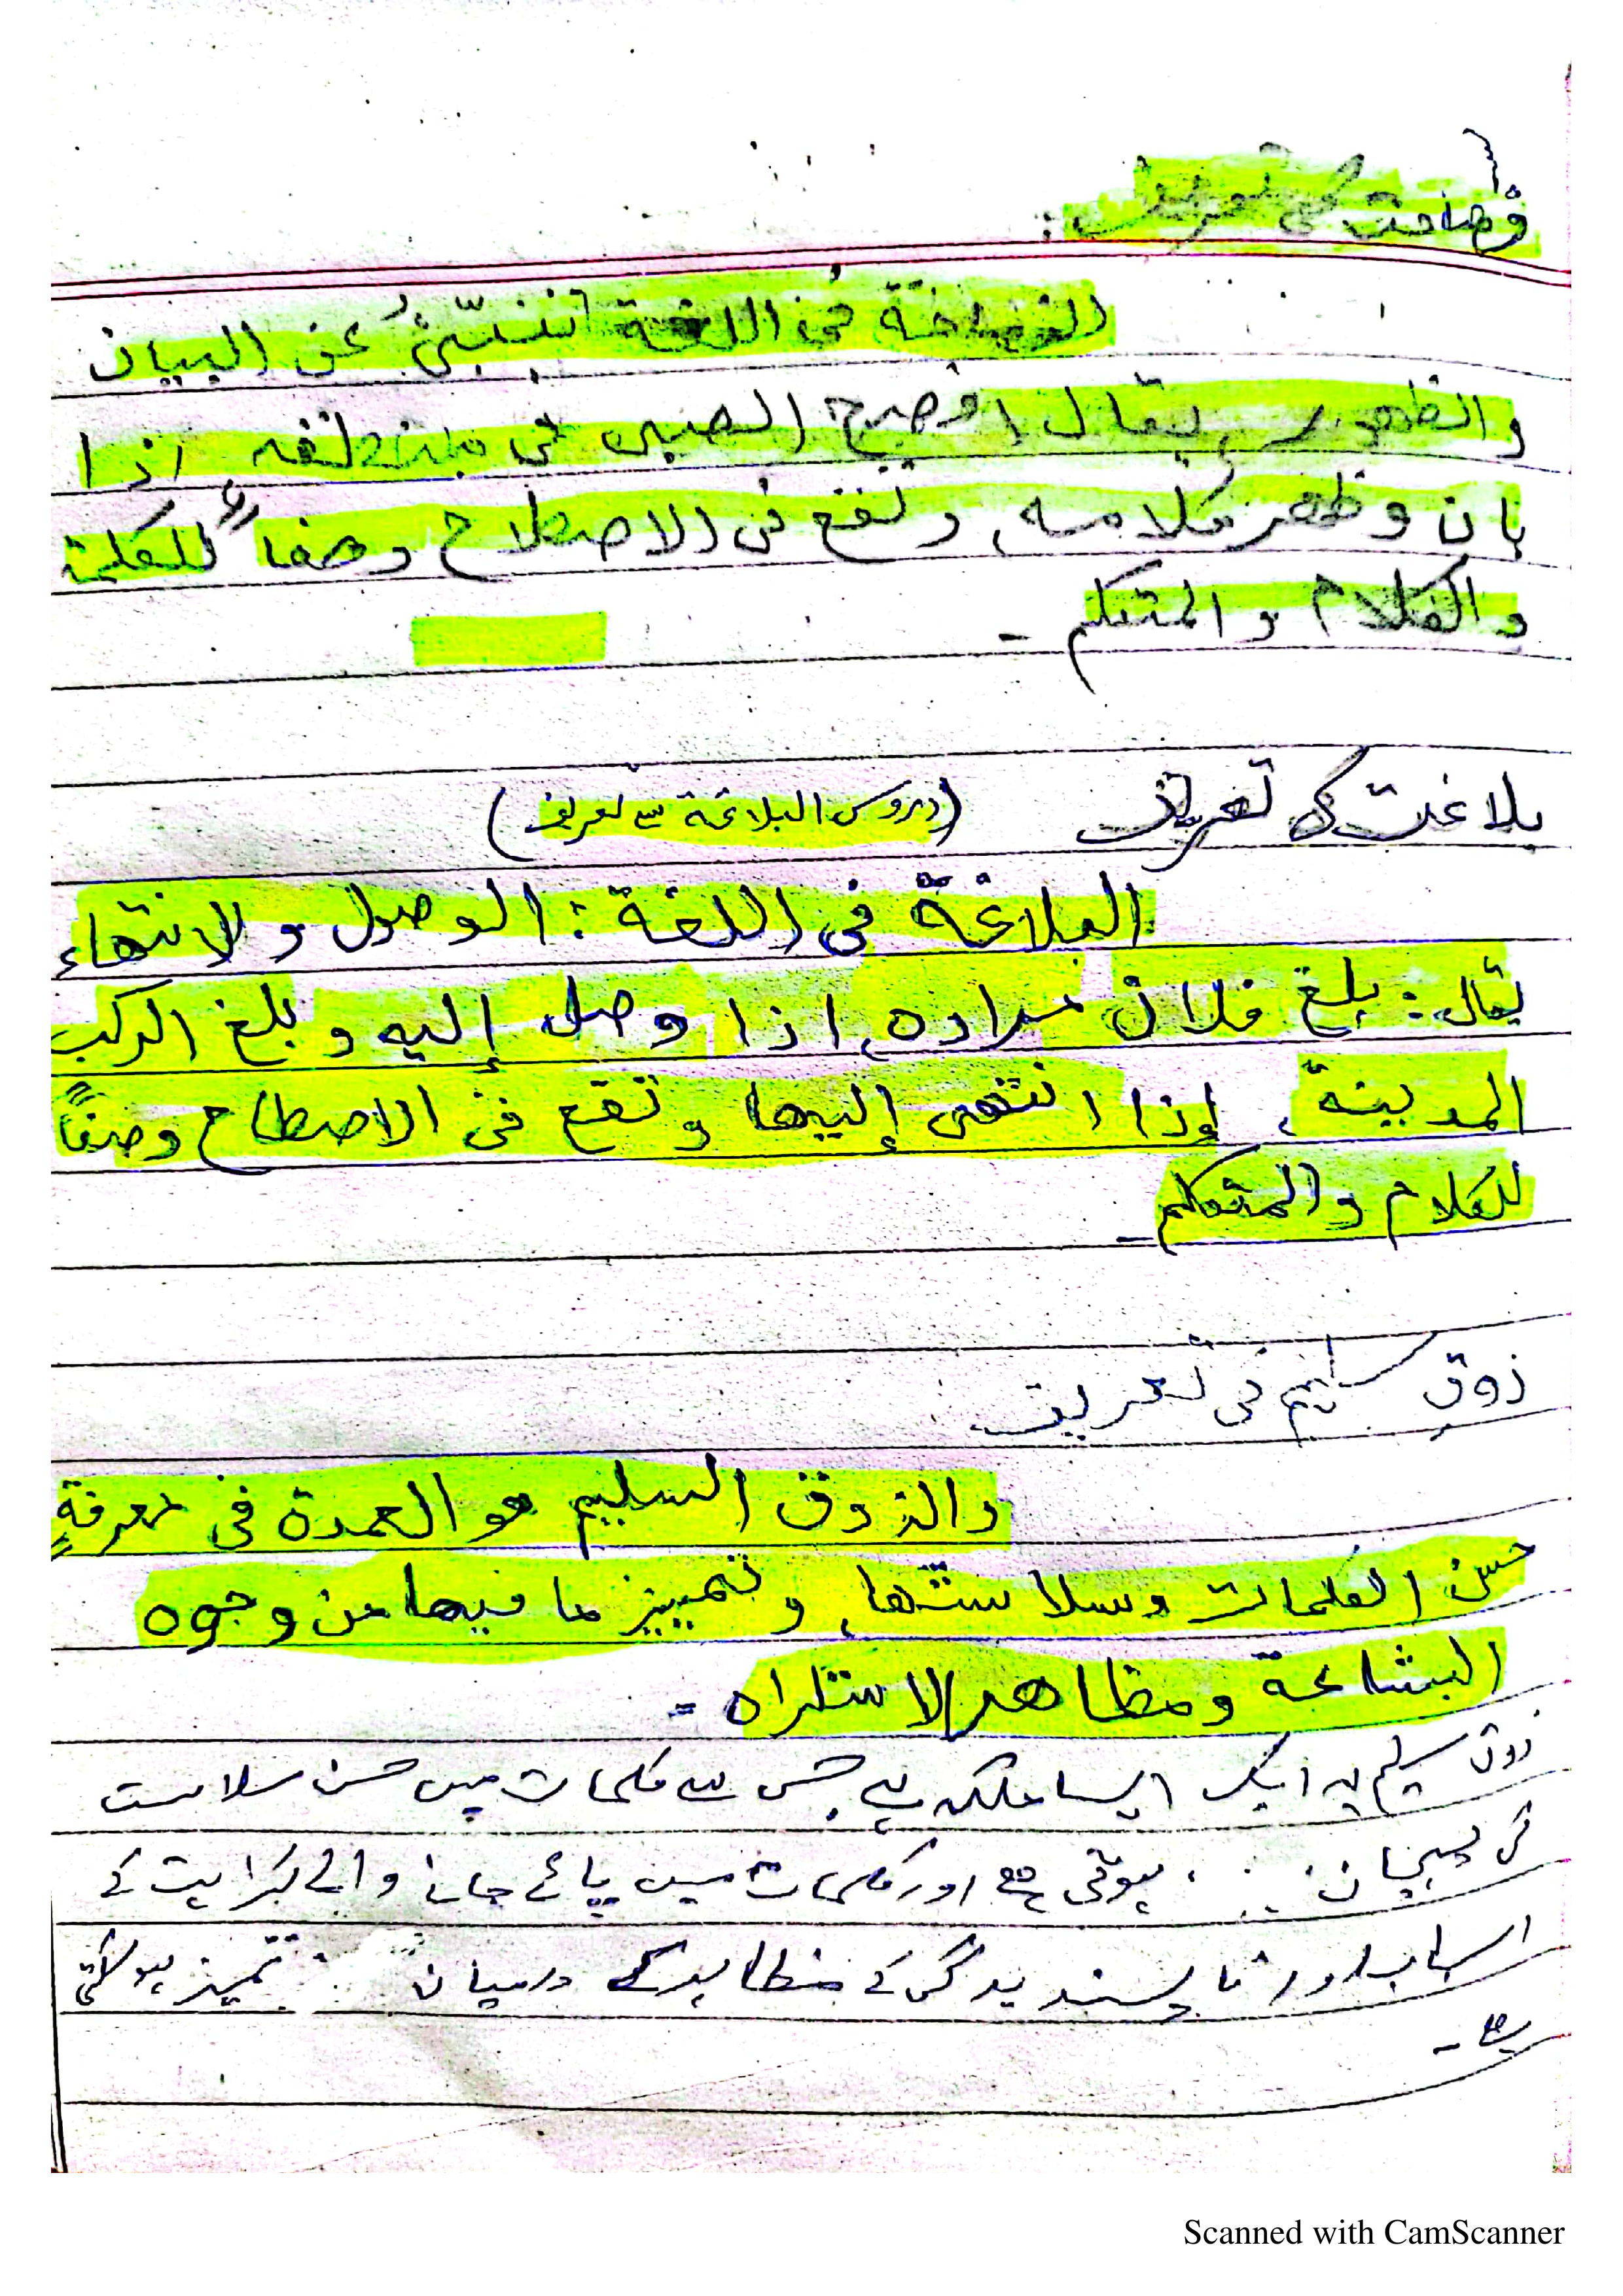 فصاحت کی تعریف:
الفصاحة في اللغة تنبئ عن البيان
والظهور، يقال افصح الصبي في منطقه اذا
بان وظهر كلامه، وتقع في الاصطلاح وصفا للكلمة
والكلام والمتكلم -
بلاغت کی تعریف (دروس البلاغة سے تعریف)
البلاغة في اللغة: الوصول ولانتهاء
يقال: بلغ فلان مراده، اذا وصل إليه وبلغ الركب
المدينة، إذا انتهى إليها وتقع في الاصطلاح وصفاً
للكلام والمتكلم -
ذوق سلیم کی تعریف
والذوق السليم هو العمدة في معرفة
حسن الكلمات وسلاستها، وتمييز ما فيها من وجوه
البشاعة ومظاهر الاستكراه -
ذوق سلیم یہ ایک ایسا ملکہ ہے جس سے کلمات میں حسن سلاست
کی پہچان ہوتی ہے اور کلمات میں پائے جانے والے کراہیت کے
اسباب اور ناپسندیدگی کے مظاہر کے درمیان تمیز ہو سکتی
ہے -
Scanned with CamScanner